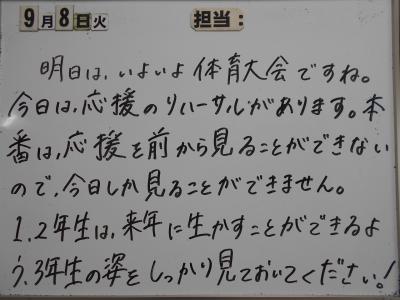 9月8日火 担当：
明日は、いよいよ体育大会ですね。
今日は、応援のリハーサルがあります。本
番は、応援を前から見ることができない
ので、今日しか見ることができません。
1.2年生は、来年に生かすことができるよ
う、3年生の姿をしっかり見ておいてください！